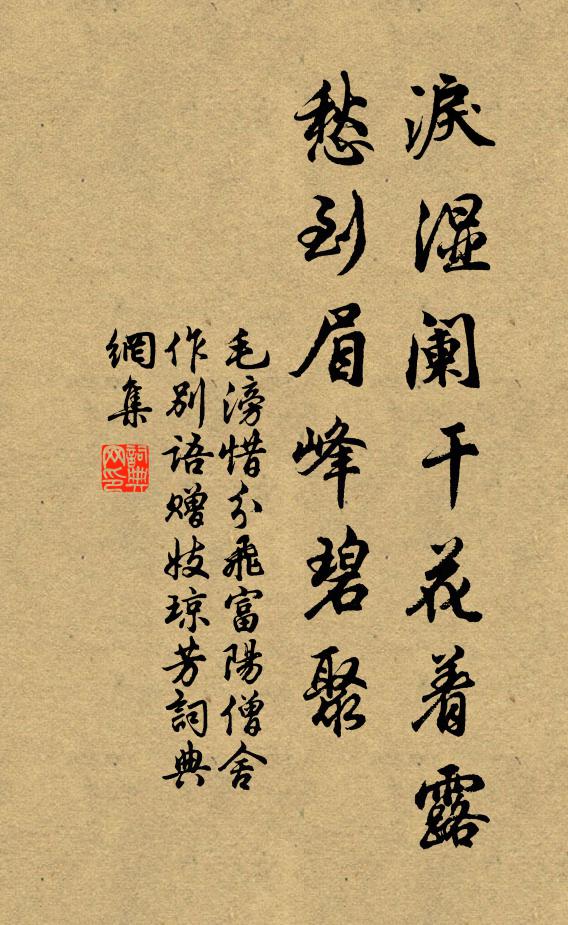 淚濕阑干花着露
愁到眉峰碧聚
毛滂惜分飛富陽僧舍
作別語贈妓琼芳詞典
網集
詞典
网印